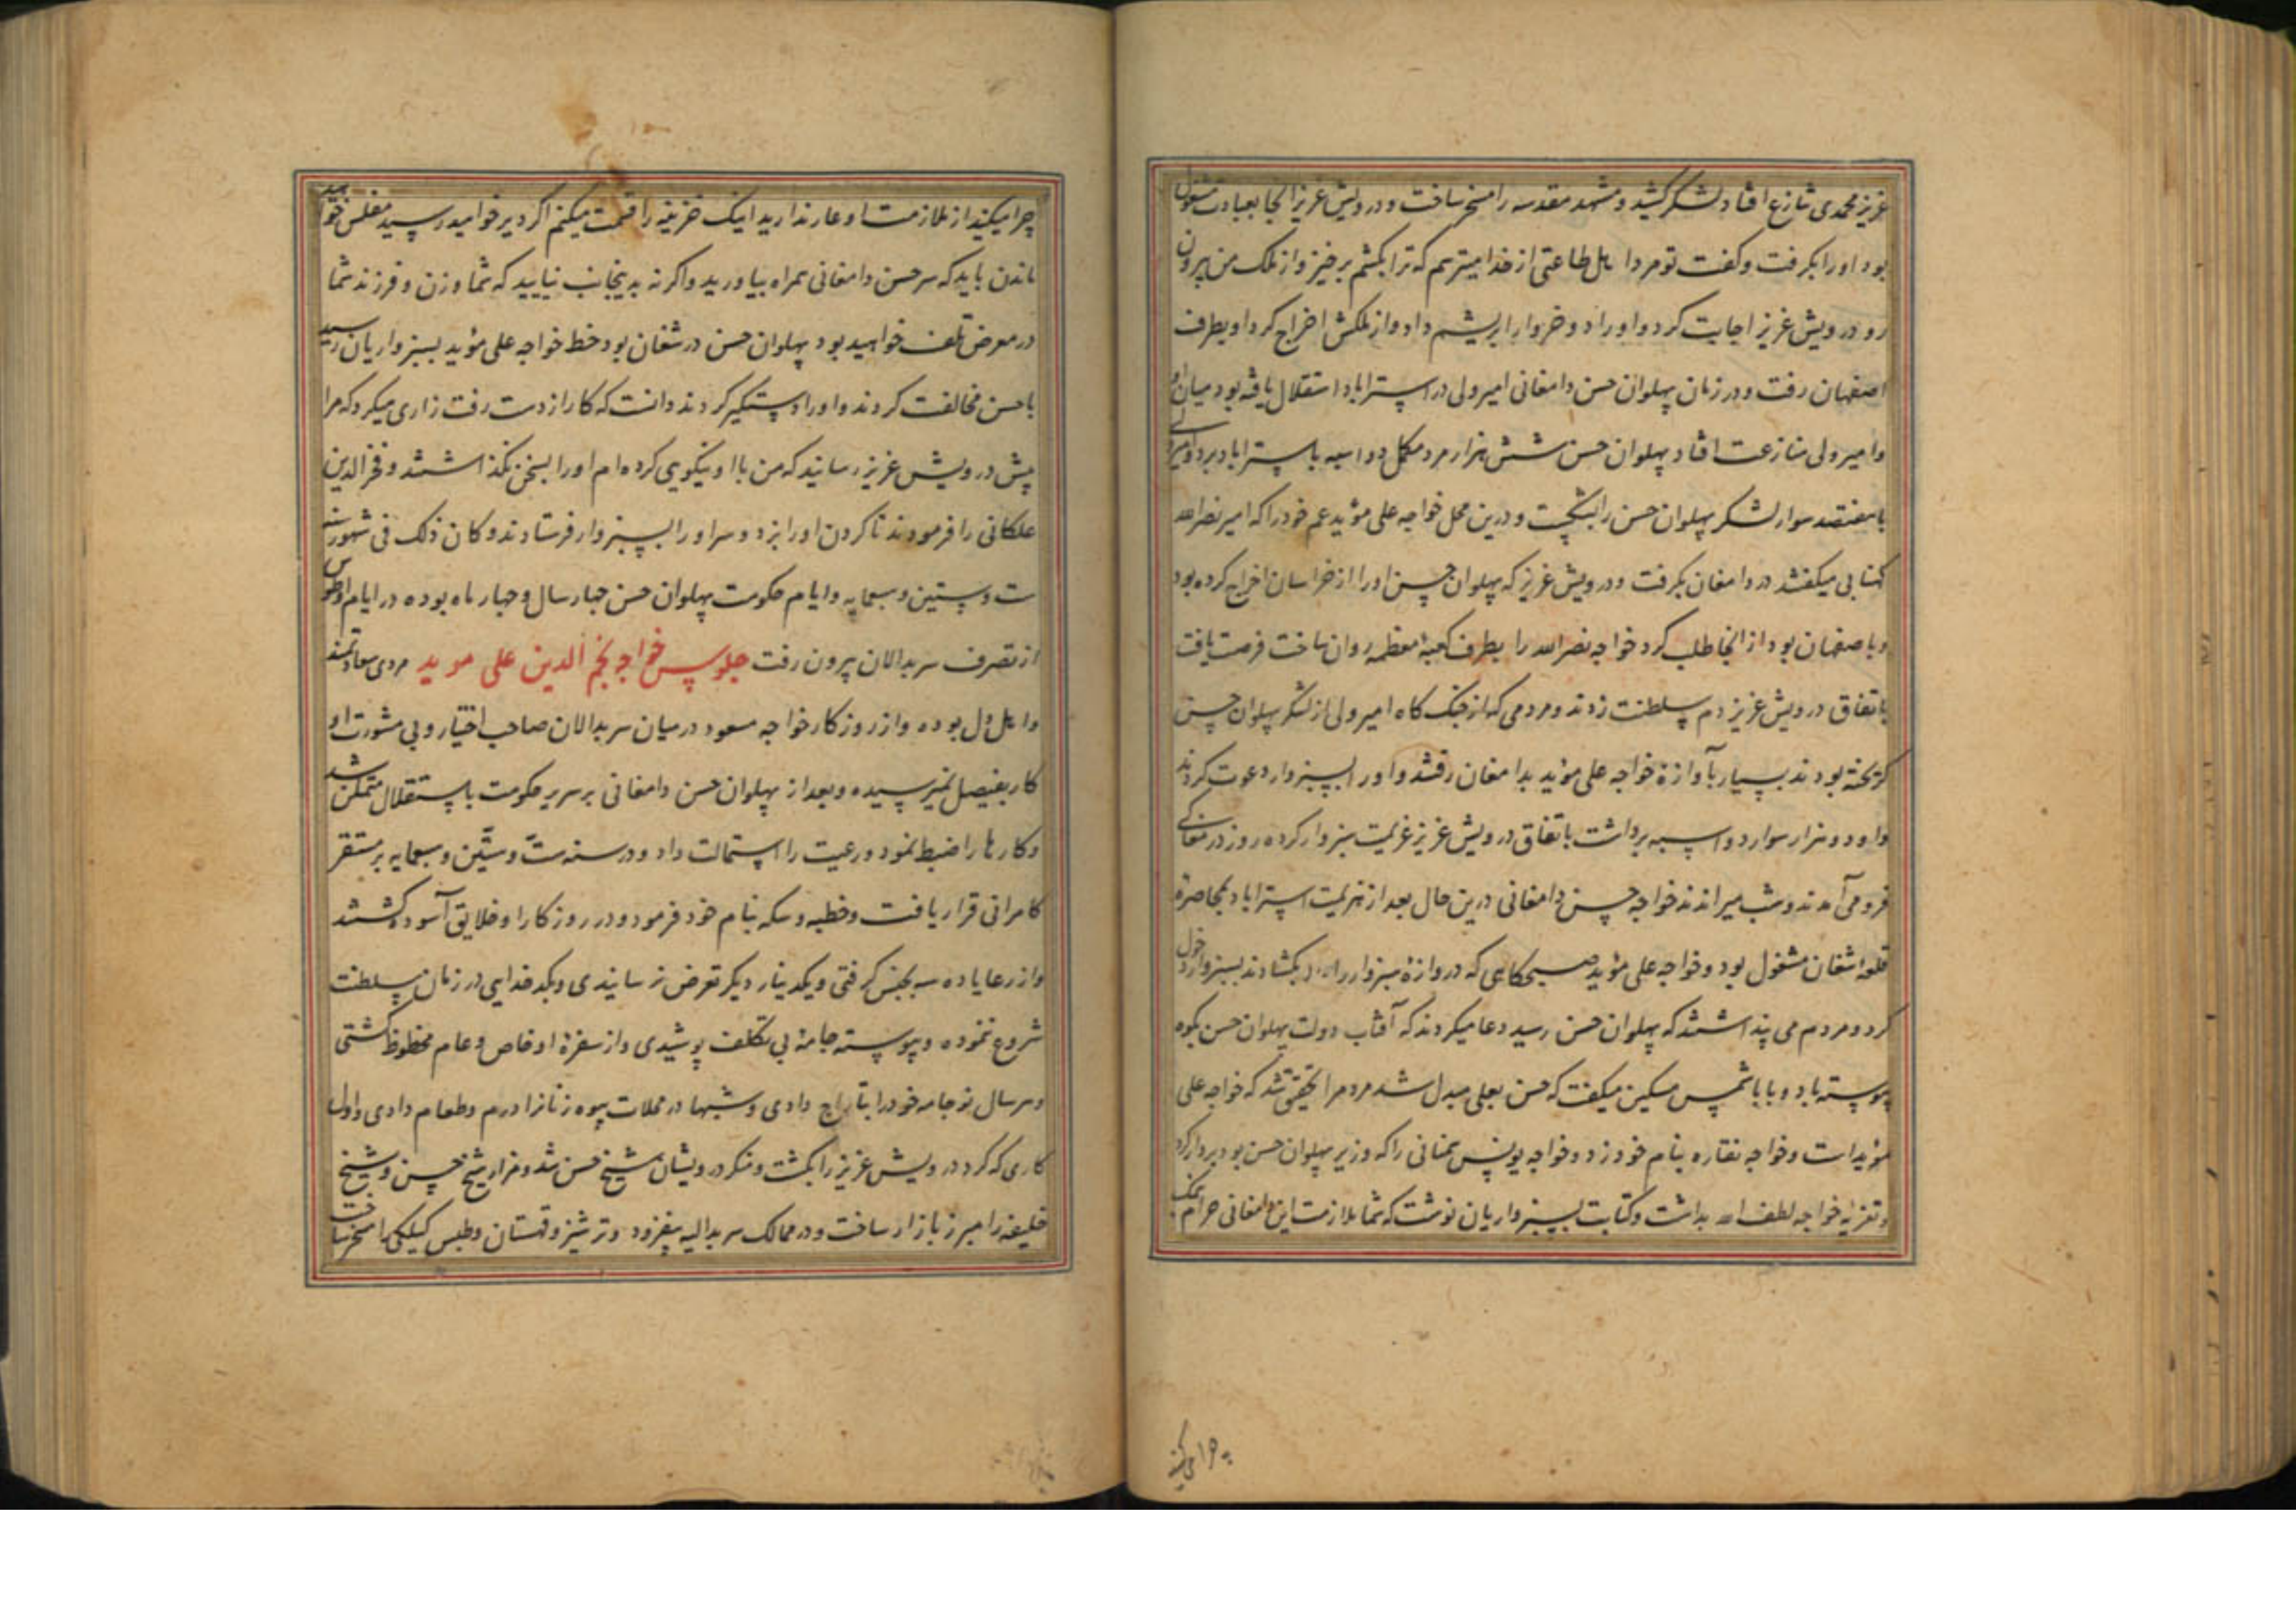 عزیز محمدی تنازع افتاد لشکر کشید و مشهد مقدسه را مسخر ساخت و درویش عزیز آنجا بعبادت مشغول
بود او را بکرفت و کفت تو مرد اهل طاعتی از خدا میترسم که ترا بکشم برخیز و از ملک من بیرون
رو درویش عزیز اجابت کرد و او را دو خروار ابریشم داد و از ملکش اخراج کرد او بطرف
اصفهان رفت و در زمان پهلوان حسن دامغانی امیر ولی در استراباد استقلال یافته بود میان او
و امیر ولی منازعت افتاد پهلوان حسن شش هزار مرد مکمل دو اسبه باستراباد برد و امیر ولی
با هفتصد سوار لشکر پهلوان حسن را بشکست و درین محل خواجه علی مؤید عم خود را که امیر نصرالله
کهنابی میکفتند در دامغان بکرفت و درویش عزیز که پهلوان حسن او را از خراسان اخراج کرده بود
و باصفهان بود از انجا طلب کرد خواجه نصرالله را بطرف کعبه معظمه روان ساخت فرصت یافت
باتفاق درویش عزیز دم سلطنت زدند و مردمی که از جنک کاه امیر ولی از لشکر پهلوان حسن
کریخته بودند بسیار بآوازهٔ خواجه علی مؤید بدامغان رفتند و او را بسبزوار دعوت کردند
و او دو هزار سوار دو اسبه برداشت باتفاق درویش عزیز عزیمت سبزوار کرده روز در مغاکی
فرو می‌آمدند و شب میراندند خواجه حسن دامغانی درین حال بعد از هزیمت استراباد بمحاصرهٔ
قلعه شغان مشغول بود و خواجه علی مؤید صبحکاهی که دروازهٔ سبزوار را بکشادند بسبزوار دخول
کرد و مردم می پنداشتند که پهلوان حسن رسید دعا میکردند که آفتاب دولت پهلوان حسن بکوه
پیوسته باد و بابا شمس مسکین میکفت که حسن بعلی مبدل شد مردم را تحقیق شد که خواجه علی
مؤید است و خواجه نقاره بنام خود زد و خواجه یونس سمنانی را که وزیر پهلوان حسن بود بردار کرد
و تعزیه خواجه لطف الله بداشت و کتابت بسبزواریان نوشت که شما ملازمت این دامغانی حرام نمک
چرا میکنید
چرا میکنید از ملازمت او عار ندارید اینک خزینه را قسمت میکنم اکر دیر خواهید رسید مفلس خواهید
ماندن باید که سر حسن دامغانی همراه بیاورید و اکر نه بدینجانب نیایید که شما و زن و فرزند شما
در معرض تلف خواهید بود پهلوان حسن در شغان بود خط خواجه علی مؤید بسبزواریان رسید
با حسن مخالفت کردند و او را دستکیر کردند دانست که کار از دست رفت زاری میکرد که مرا
پیش درویش عزیز رسانید که من با او نیکویی کرده‌ام او را بسخن نکذاشتند و فخر الدین
علکانی را فرمودند تا کردن او را بزد و سر او را بسبزوار فرستادند و کان ذلک فی شهور سنه
ست و ستین و سبعمایه و ایام حکومت پهلوان حسن چهار سال و چهار ماه بوده در ایام او طوس
از تصرف سربدالان بیرون رفت جلوس خواجه نجم الدین علی موید مردی سعادتمند
و اهل دل بوده و از روزکار خواجه مسعود در میان سربدالان صاحب اختیار و بی مشورت او
کار بفیصل نمیرسیده و بعد از پهلوان حسن دامغانی بر سریر حکومت باستقلال متمکن شد
و کارها را ضبط نمود و رعیت را استمالت داد و در سنه ستّ و ستّین و سبعمایه بر مستقر
کامرانی قرار یافت و خطبه و سکه بنام خود فرمود و در روزکار او خلایق آسوده کشتند
و از رعایا ده سه بجنس کرفتی و یکدینار دیکر تعرض نرسانیدی و بکدخدایی در زمان سلطنت
شروع نموده و پیوسته جامهٔ بی تکلف پوشیدی و از سفرهٔ او خاص و عام محظوظ کشتی
و هر سال نو جامه خود را بتاراج دادی و شبها در محلات بیوه زنانرا درم و طعام دادی و اول
کاری که کرد درویش عزیز را بکشت و منکر درویشان شیخ حسن شد و مزار شیخ حسن و شیخ
خلیفه را مبرز بازار ساخت و در ممالک سربدالیه بیفزود و ترشیز و قهستان و طبس کیلکی را مسخر ساخت